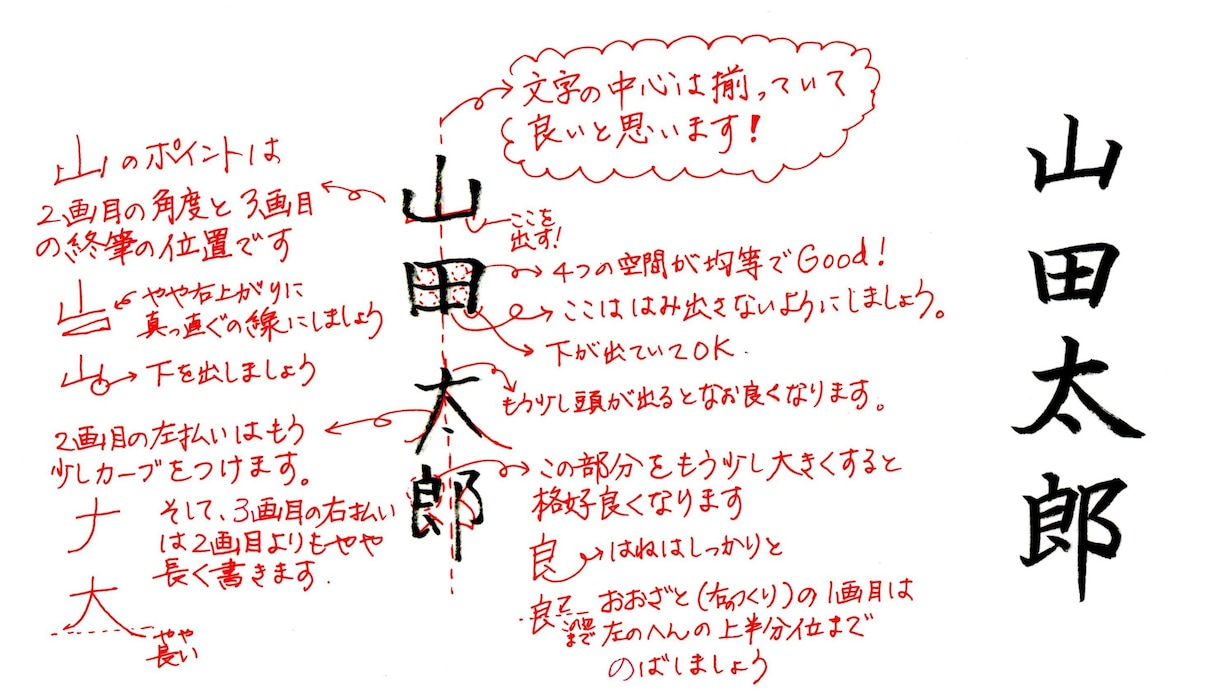 文字の中心は揃っていて
良いと思います!
山のポイントは
2画目の角度と3画目
の終筆の位置です
山
やや右上がりに
真っ直ぐの線にしましょう
山
下を出しましょう
2画目の左払いはもう
少しカーブをつけます。
ナ
そして、3画目の右払い
は2画目よりもやや
長く書きます.
大
やや
長い
山
田
太
郎
ここを
出す!
4つの空間が均等でGood!
ここははみ出さないようにしましょう。
下が出ていてOK.
もう少し頭が出るとなお良くなります。
この部分をもう少し大きくすると
格好良くなります
良
はねはしっかりと
良
この辺
まで
おおざと(右のつくり)の1画目は
左のへんの上半分位まで
のばしましょう
山
田
太
郎